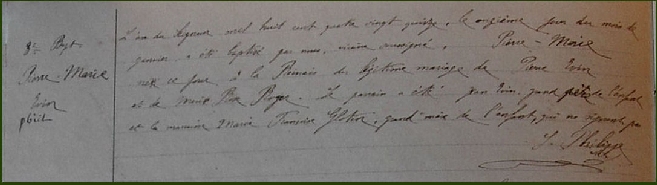 8e Bapt
Pierre-Marie
Evin
L'an du Seigneur mil huit cent quatre vingt quinze, le onzième jour du mois de
janvier a été baptisé par nous, vicaire soussigné, Pierre-Marie
né ce jour à la du légitime mariage de Pierre Evin
et de Marie Le parrain a été Jean Evin, grand père de l'enfant
et la marraine Marie Françoise grand'mère de l'enfant, qui ne signent pas